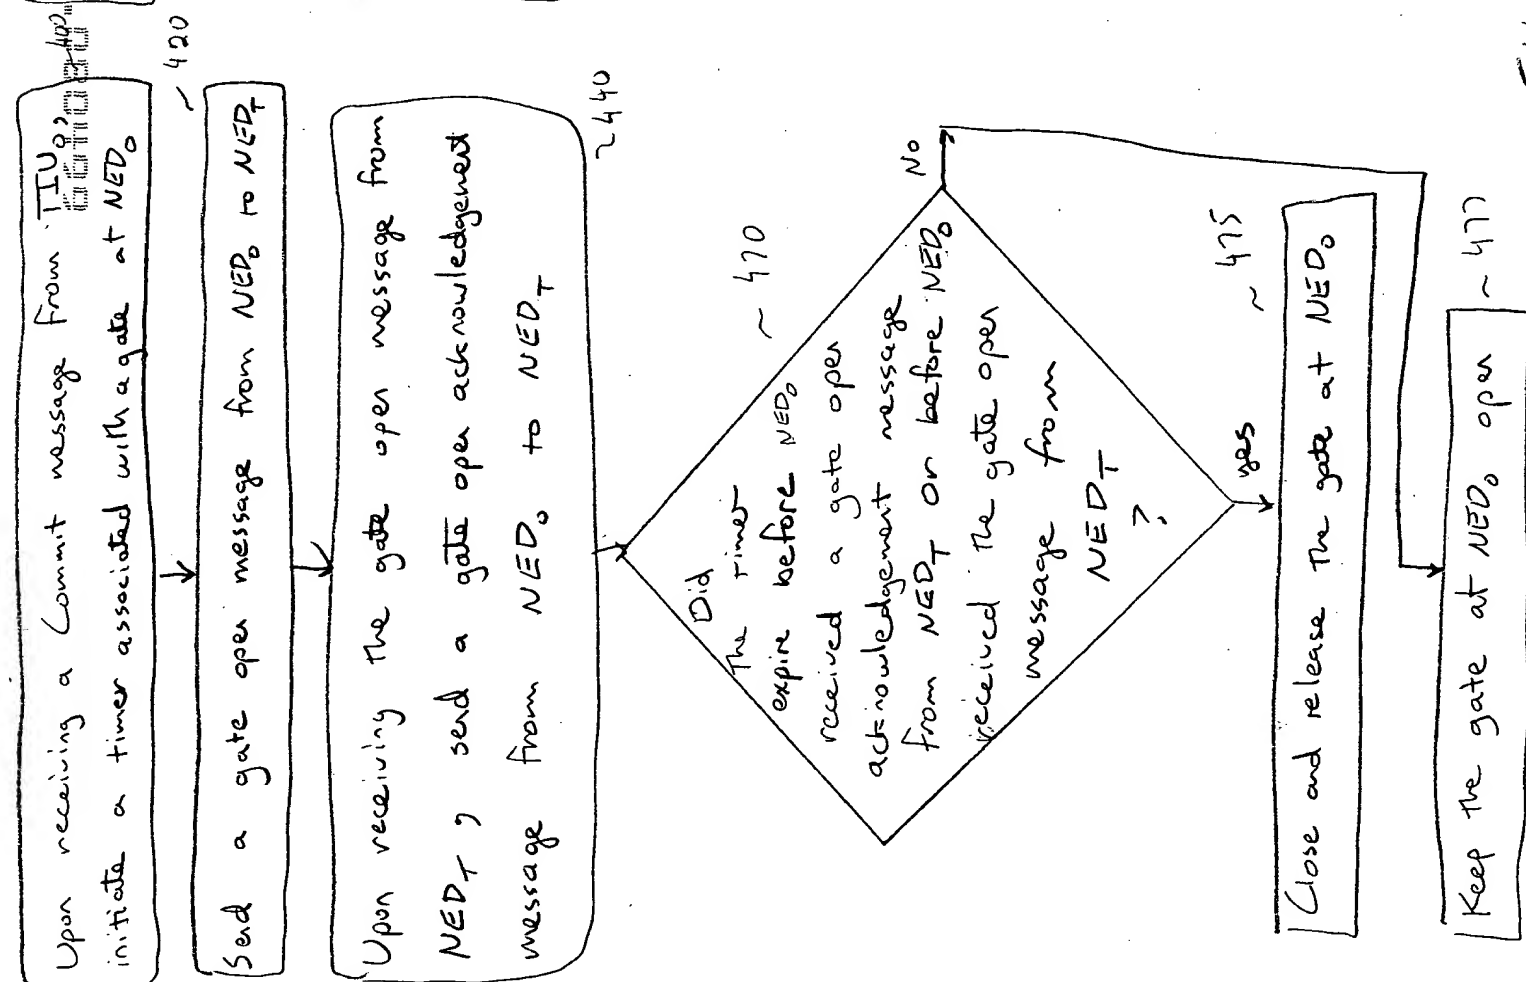 Upon receiving a Commit message from TIU₀,
initiate a timer associated with a gate at NED₀
~ 420
Send a gate open message from NED₀ to NED_T
Upon receiving the gate open message from
NED_T, send a gate open acknowledgement
message from NED₀ to NED_T
~ 440
Did
The timer
expire before NED₀
received a gate open
acknowledgement message
from NED_T or before NED₀
received the gate open
message from
NED_T
?
~ 470
No
yes
~ 475
Close and release the gate at NED₀
Keep the gate at NED₀ open
~ 477